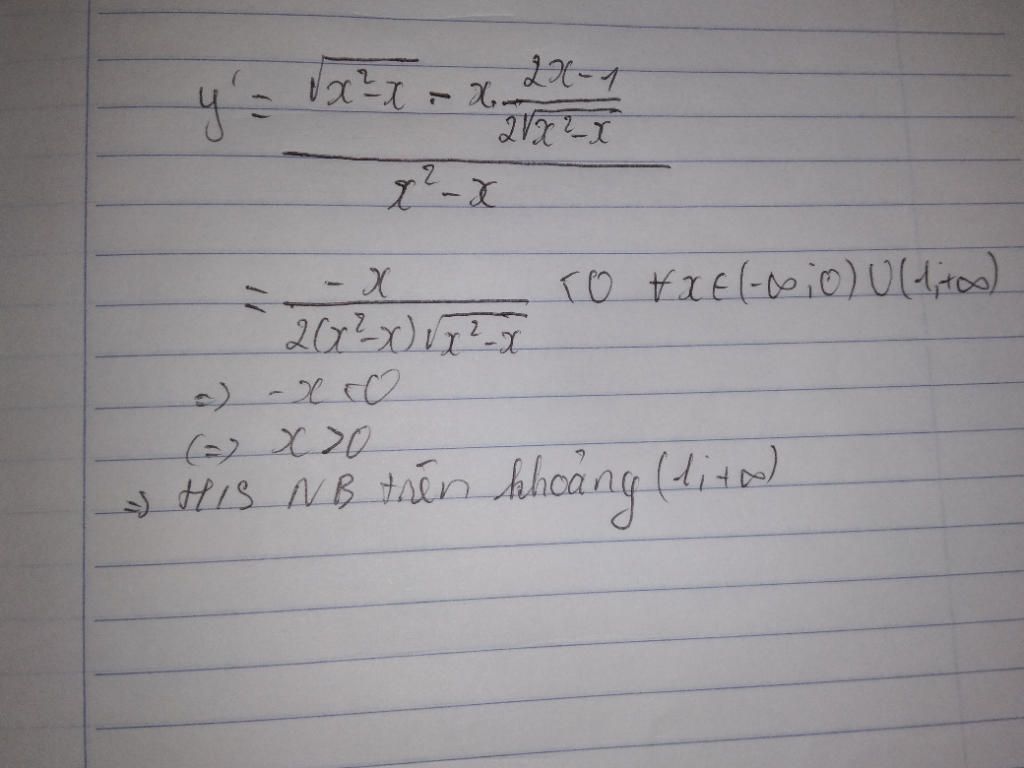 y' = (√(x²-x) - x. (2x-1)/(2√(x²-x)))/(x²-x)
= -x/(2(x²-x)√(x²-x)) <0 ∀x∈(-∞;0)∪(1;+∞)
=> -x <0
(=> x>0
=> H/S NB trên khoảng (1;+∞)